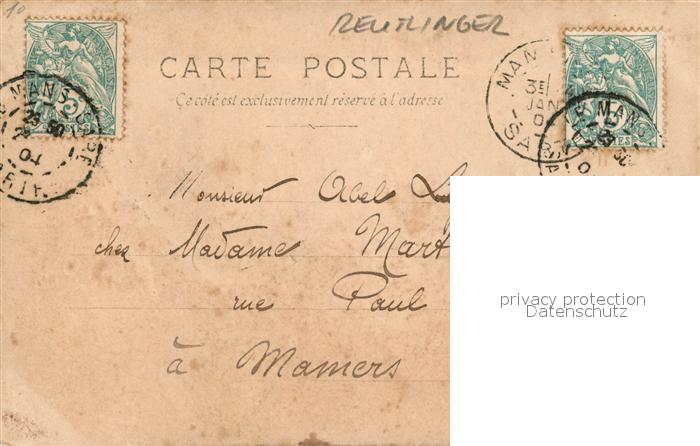 10
REUTLINGER
CARTE POSTALE
Ce côté est exclusivement réservé à l'adresse
Monsieur Abel
chez Madame Mart
rue Paul
à Mamers
privacy protection
Datenschutz